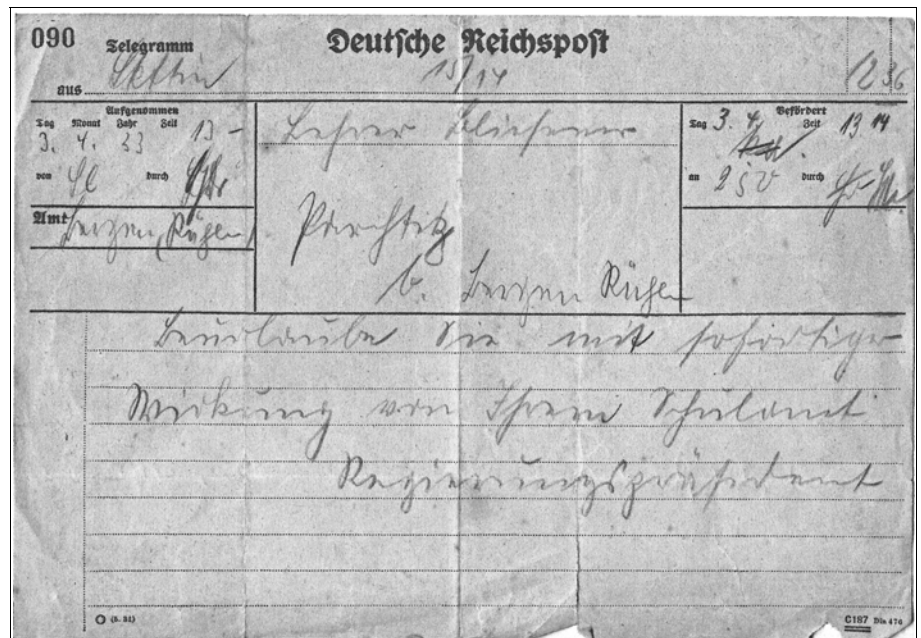 090 Telegramm Deutsche Reichspost
aus Stettin 15/14 1236
Aufgenommen
Tag Monat Jahr Zeit
3. 4. 33 13 –
von Sl durch
Amt Bergen (Rügen)
Lehrer
Parchtitz
b. Bergen Rügen
Befördert
Tag 3. 4. Zeit 13 14
an durch
Beurlaube Sie mit sofortiger
Wirkung von Ihrem Schulamt
Regierungspräsident
(5. 31)
C187 Din 476